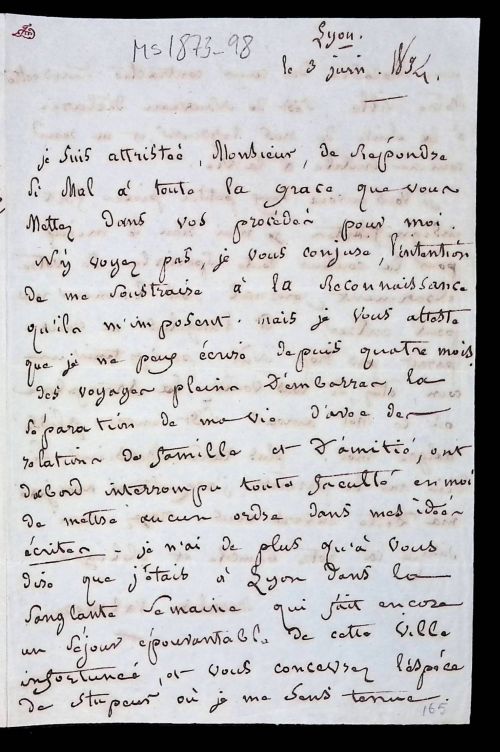 Ms 1873-98
Lyon.
le 3 juin 1834.
je suis attristée, Monsieur, de répondre
si mal à toute la grace que vous
mettez dans vos procédés pour moi.
N'y voyez pas, je vous conjure, l'intention
de me soustraire à la Reconnaissance
qu'ils m'imposent. mais je vous atteste
que je ne peux écrire depuis quatre mois.
des voyages pleins d'embarras, la
séparation de ma vie d'avec des
relations de famille et d'amitié, ont
dabord interrompu toute faculté en moi
de mettre aucun ordre dans mes idées
écrites - je n'ai de plus qu'à vous
dire que j'étais à Lyon dans la
sanglante semaine qui fait encore
un séjour épouvantable de cette ville
infortunée, et vous concevrez l'espèce
de stupeur où je me sens tenue.
165